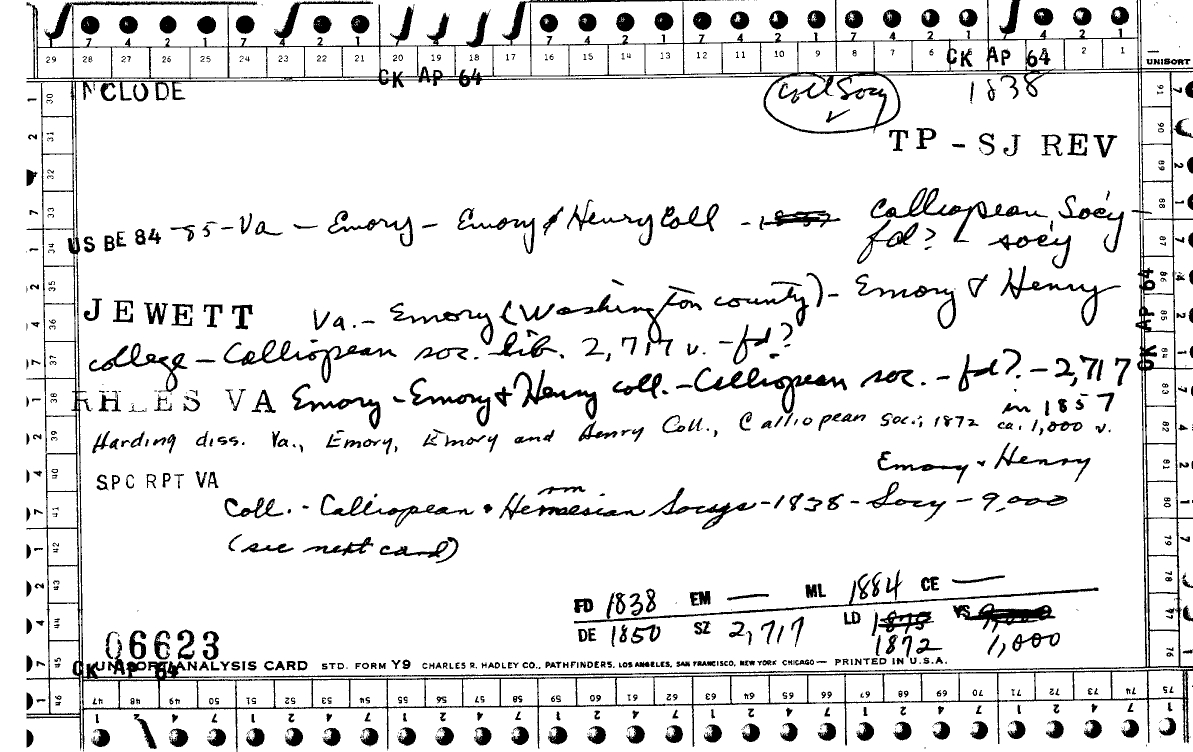 7 4 2 1 7 4 2 1 7 4 2 1 7 4 2 1 7 4 2 1 7 4 2 1 7 4 2 1
29 28 27 26 25 24 23 22 21 20 19 18 17 16 15 14 13 12 11 10 9 8 7 6 5 4 3 2 1 UNISORT
CK AP 64 CK AP 64
NCLUDE Coll Socy 1838
TP - SJ REV
US BE 84-85-Va - Emory - Emory & Henry Coll - Calliopean Soc'y -
fd? - soc'y
JEWETT Va. - Emory (Washington county) - Emory & Henry
college - Calliopean soc. lib. 2,717 v. - fd?
RHEES VA Emory - Emory & Henry coll. - Calliopean soc. - fd?. - 2,717
in 1857
Harding diss. Va., Emory, Emory and Henry Coll., Calliopean Soc.; 1872 ca. 1,000 v.
SPC RPT VA Emory & Henry
Coll. - Calliopean & Hermesian Socys - 1838 - Socy - 9,000
(see next card)
FD 1838 EM — ML 1884 CE —
DE 1850 SZ 2,717 LD 1875 VS 9,000
1872 1,000
06623
CK AP 64
UNISORT ANALYSIS CARD STD. FORM Y9 CHARLES R. HADLEY CO., PATHFINDERS, LOS ANGELES, SAN FRANCISCO, NEW YORK CHICAGO — PRINTED IN U.S.A.
CK AP 64